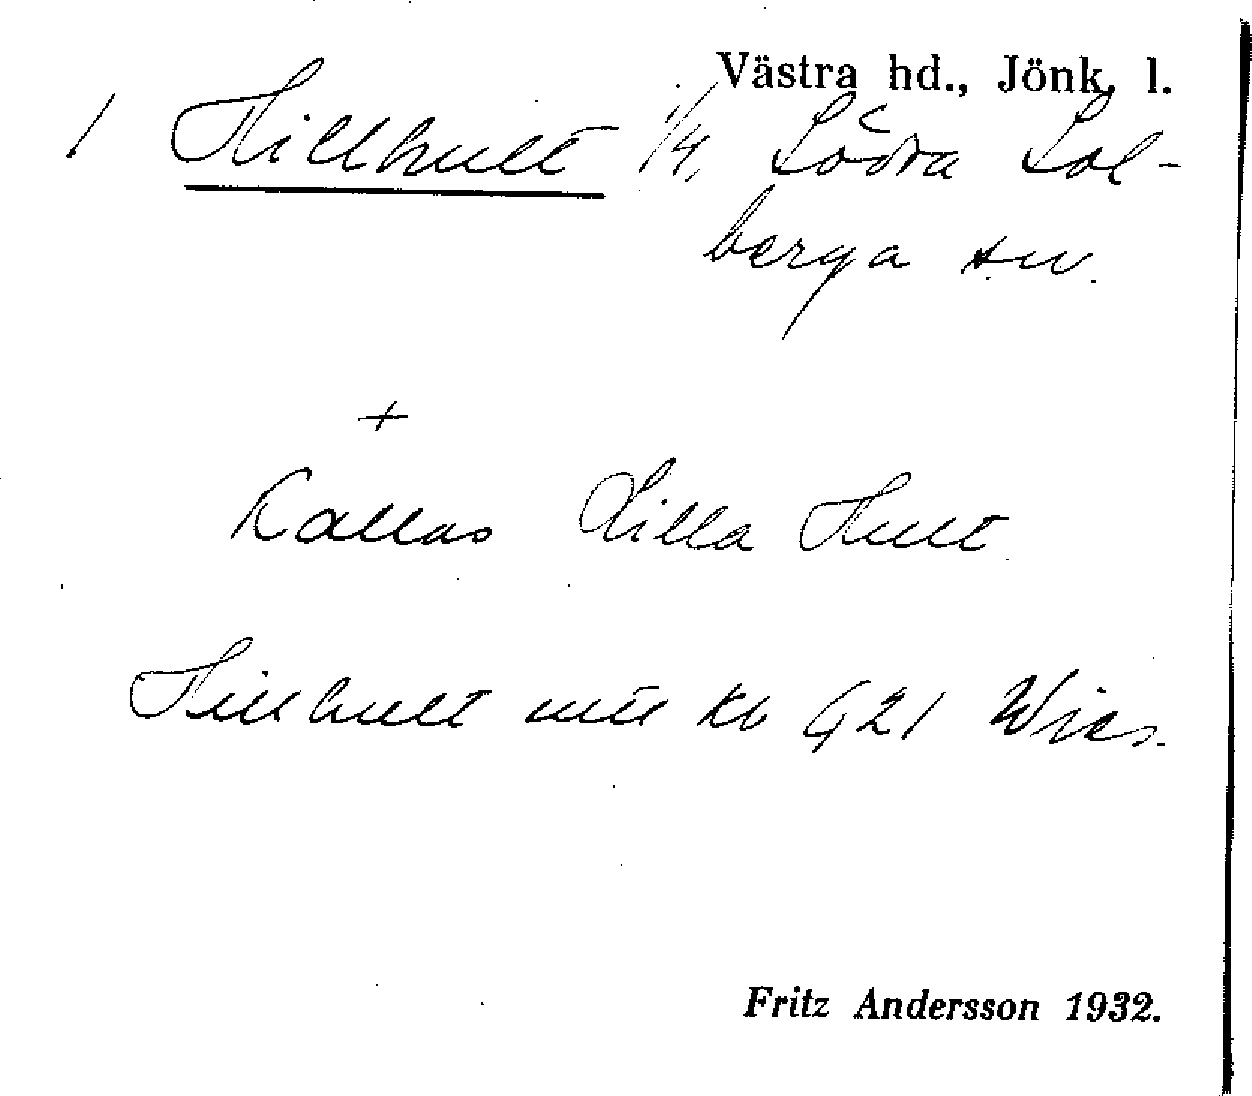 Västra hd., Jönk. l.
1 Hillhult 1/4, Södra Sol-
berga sn.
+
Kallas Lilla Hult
Hillhult mtl kb 421 Wies.
Fritz Andersson 1932.